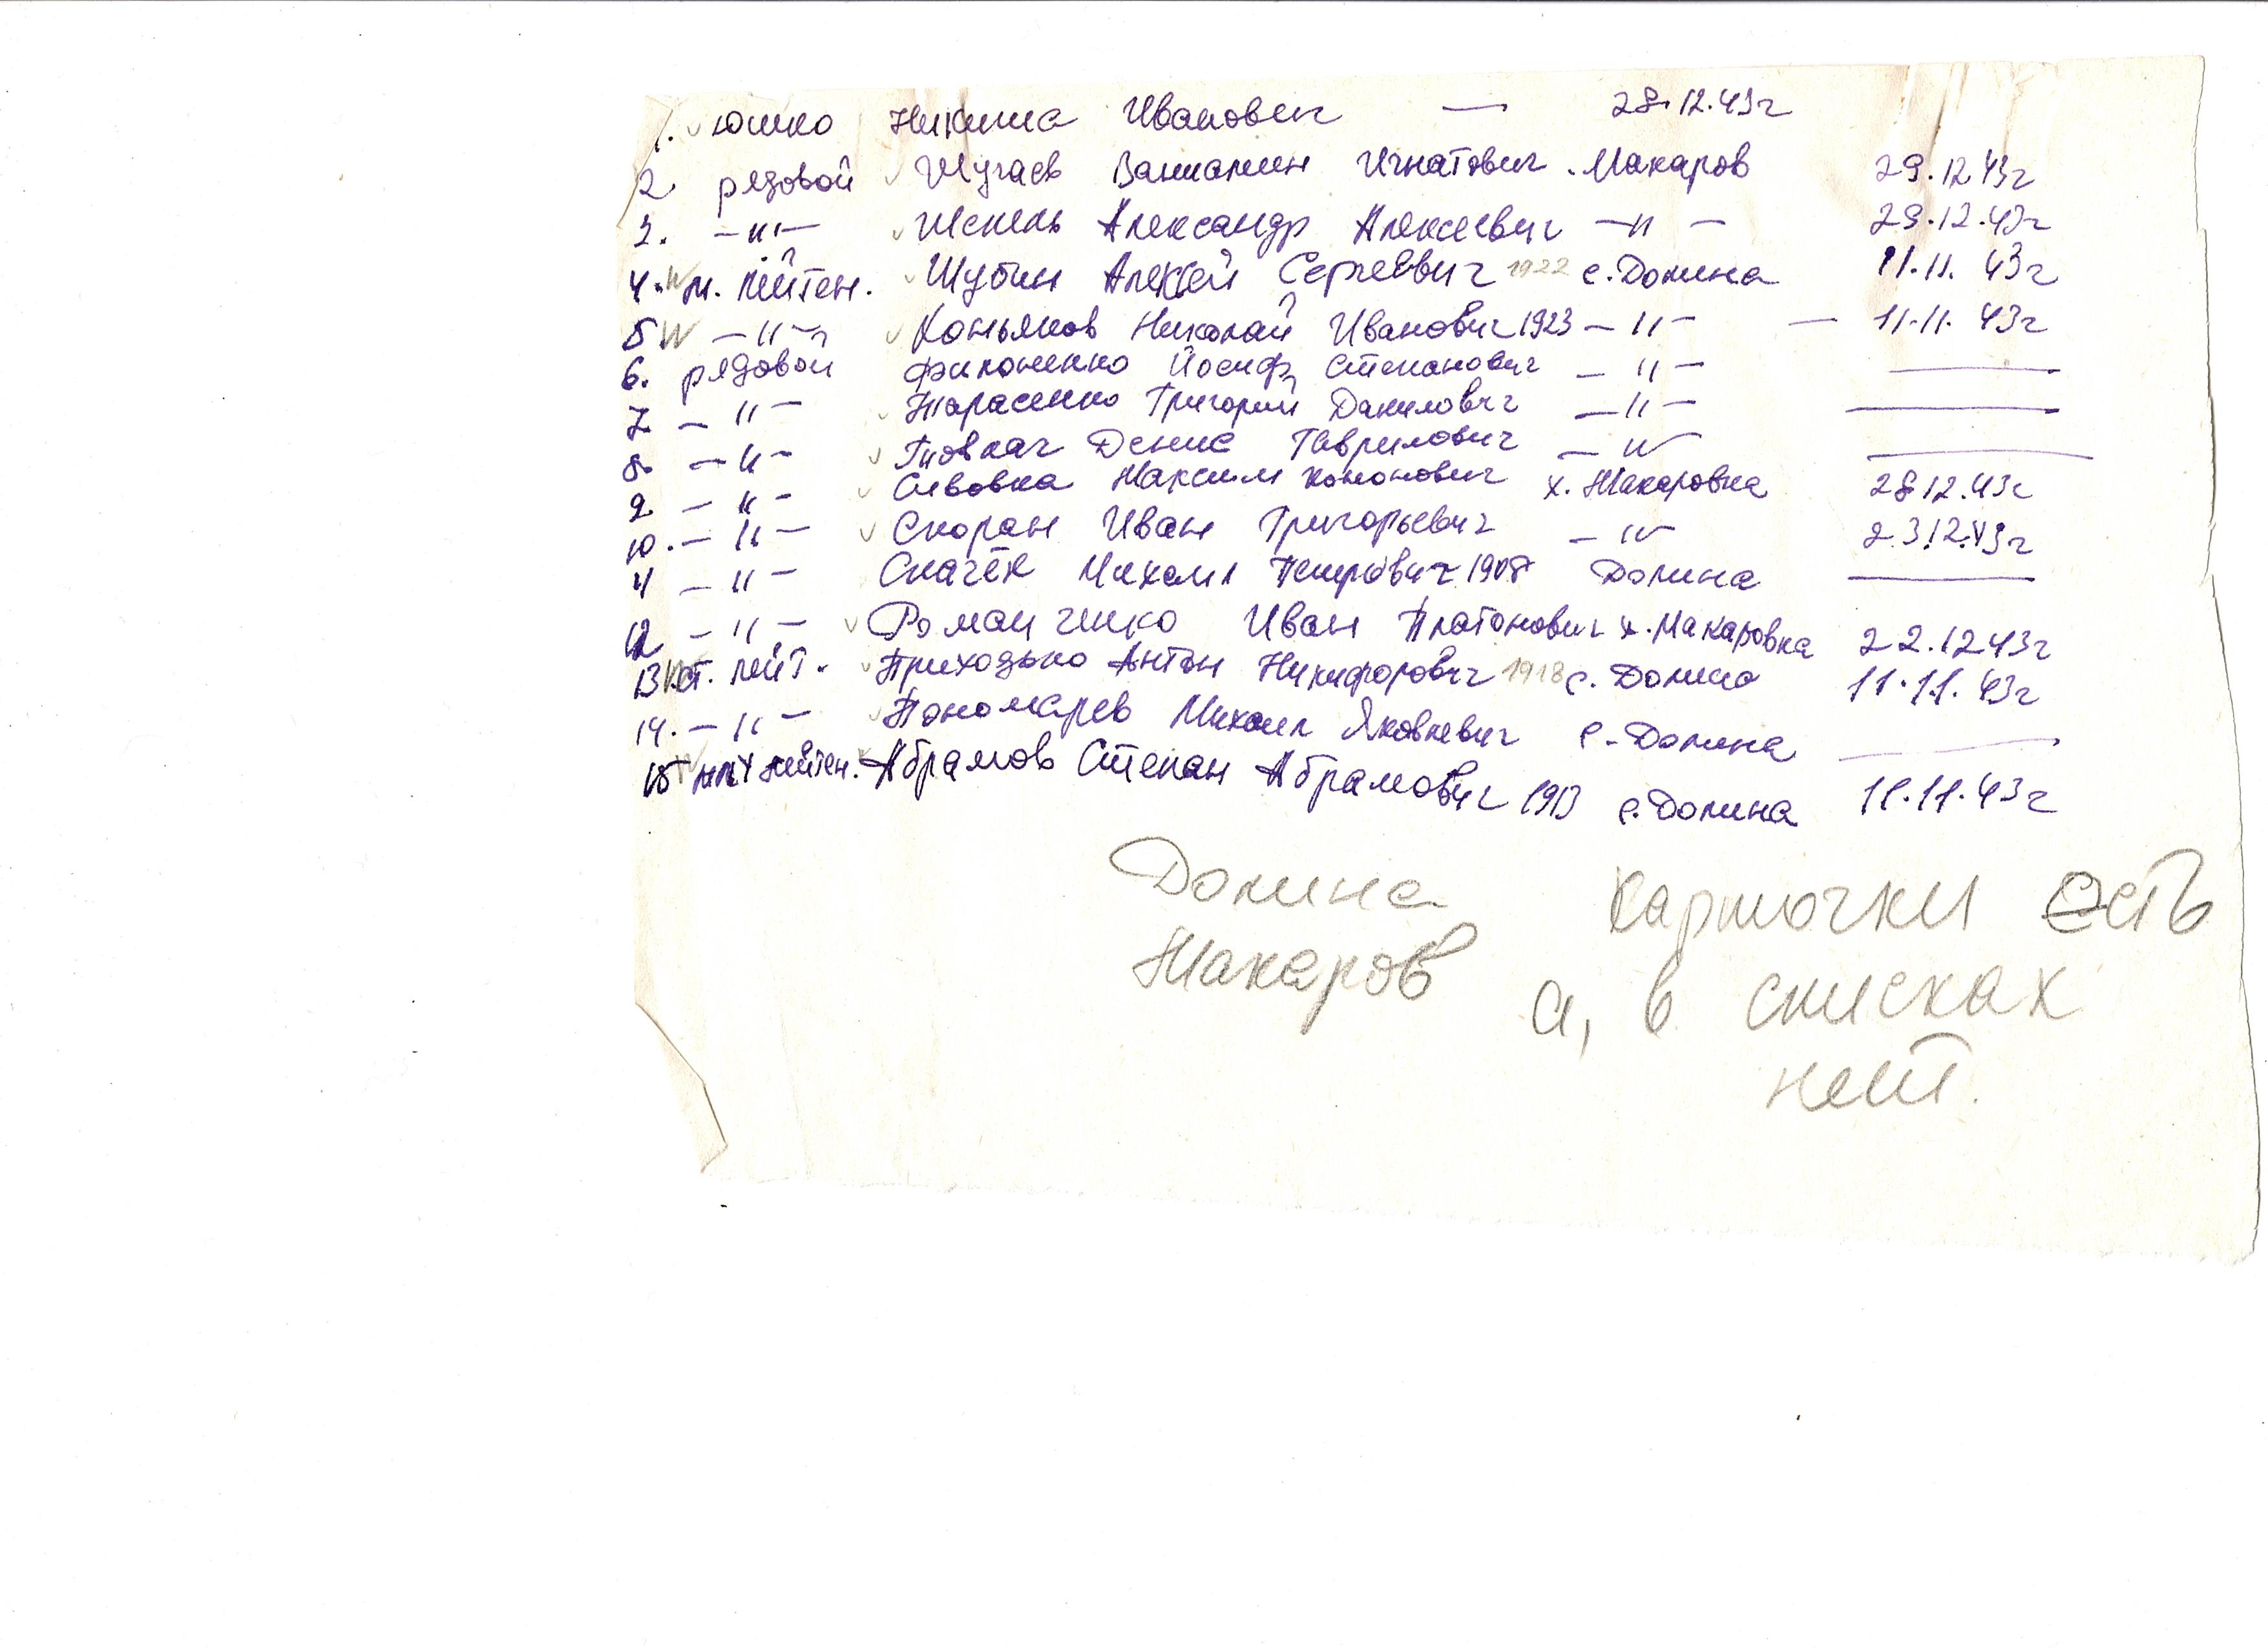 1. Юшко Никита Иванович — 28.12.43г
2 рядовой Шугаев Вениамин Игнатович . Макаров 29.12.43г
3. —"— Шекель Александр Алексеевич —"— 29.12.43г
4. м. лейтен. Шубин Алексей Сергеевич 1922 с. Долина 11.11. 43г
5 —"— Коньяков Николай Иванович 1923 —"— — 11.11. 43г
6. рядовой Филоненко Иосиф Степанович —"— ——
7. —"— Тарасенко Григорий Данилович —"— ——
8. —"— Денис Гаврилович —"— ——
9. —"— Сивовка Максим Кононович х. Макаровка 28 12.43г
10. —"— Скоран Иван Григорьевич —"— 23.12.43г
11 —"— Скачёк Михаил Петрович 1908 Долина ——
12 —"— Романченко Иван Платонович х. Макаровка 22.12 43г
13 ст. лейт. Приходько Антон Никифорович 1918 с. Долина 11.11. 43г
14. —"— Пономарев Михаил Яковлевич с. Долина ——
15 мл лейтен. Абрамов Степан Абрамович 1913 с. Долина 11.11.43г
Долина Карточки есть
Макаров а, в списках
нет.